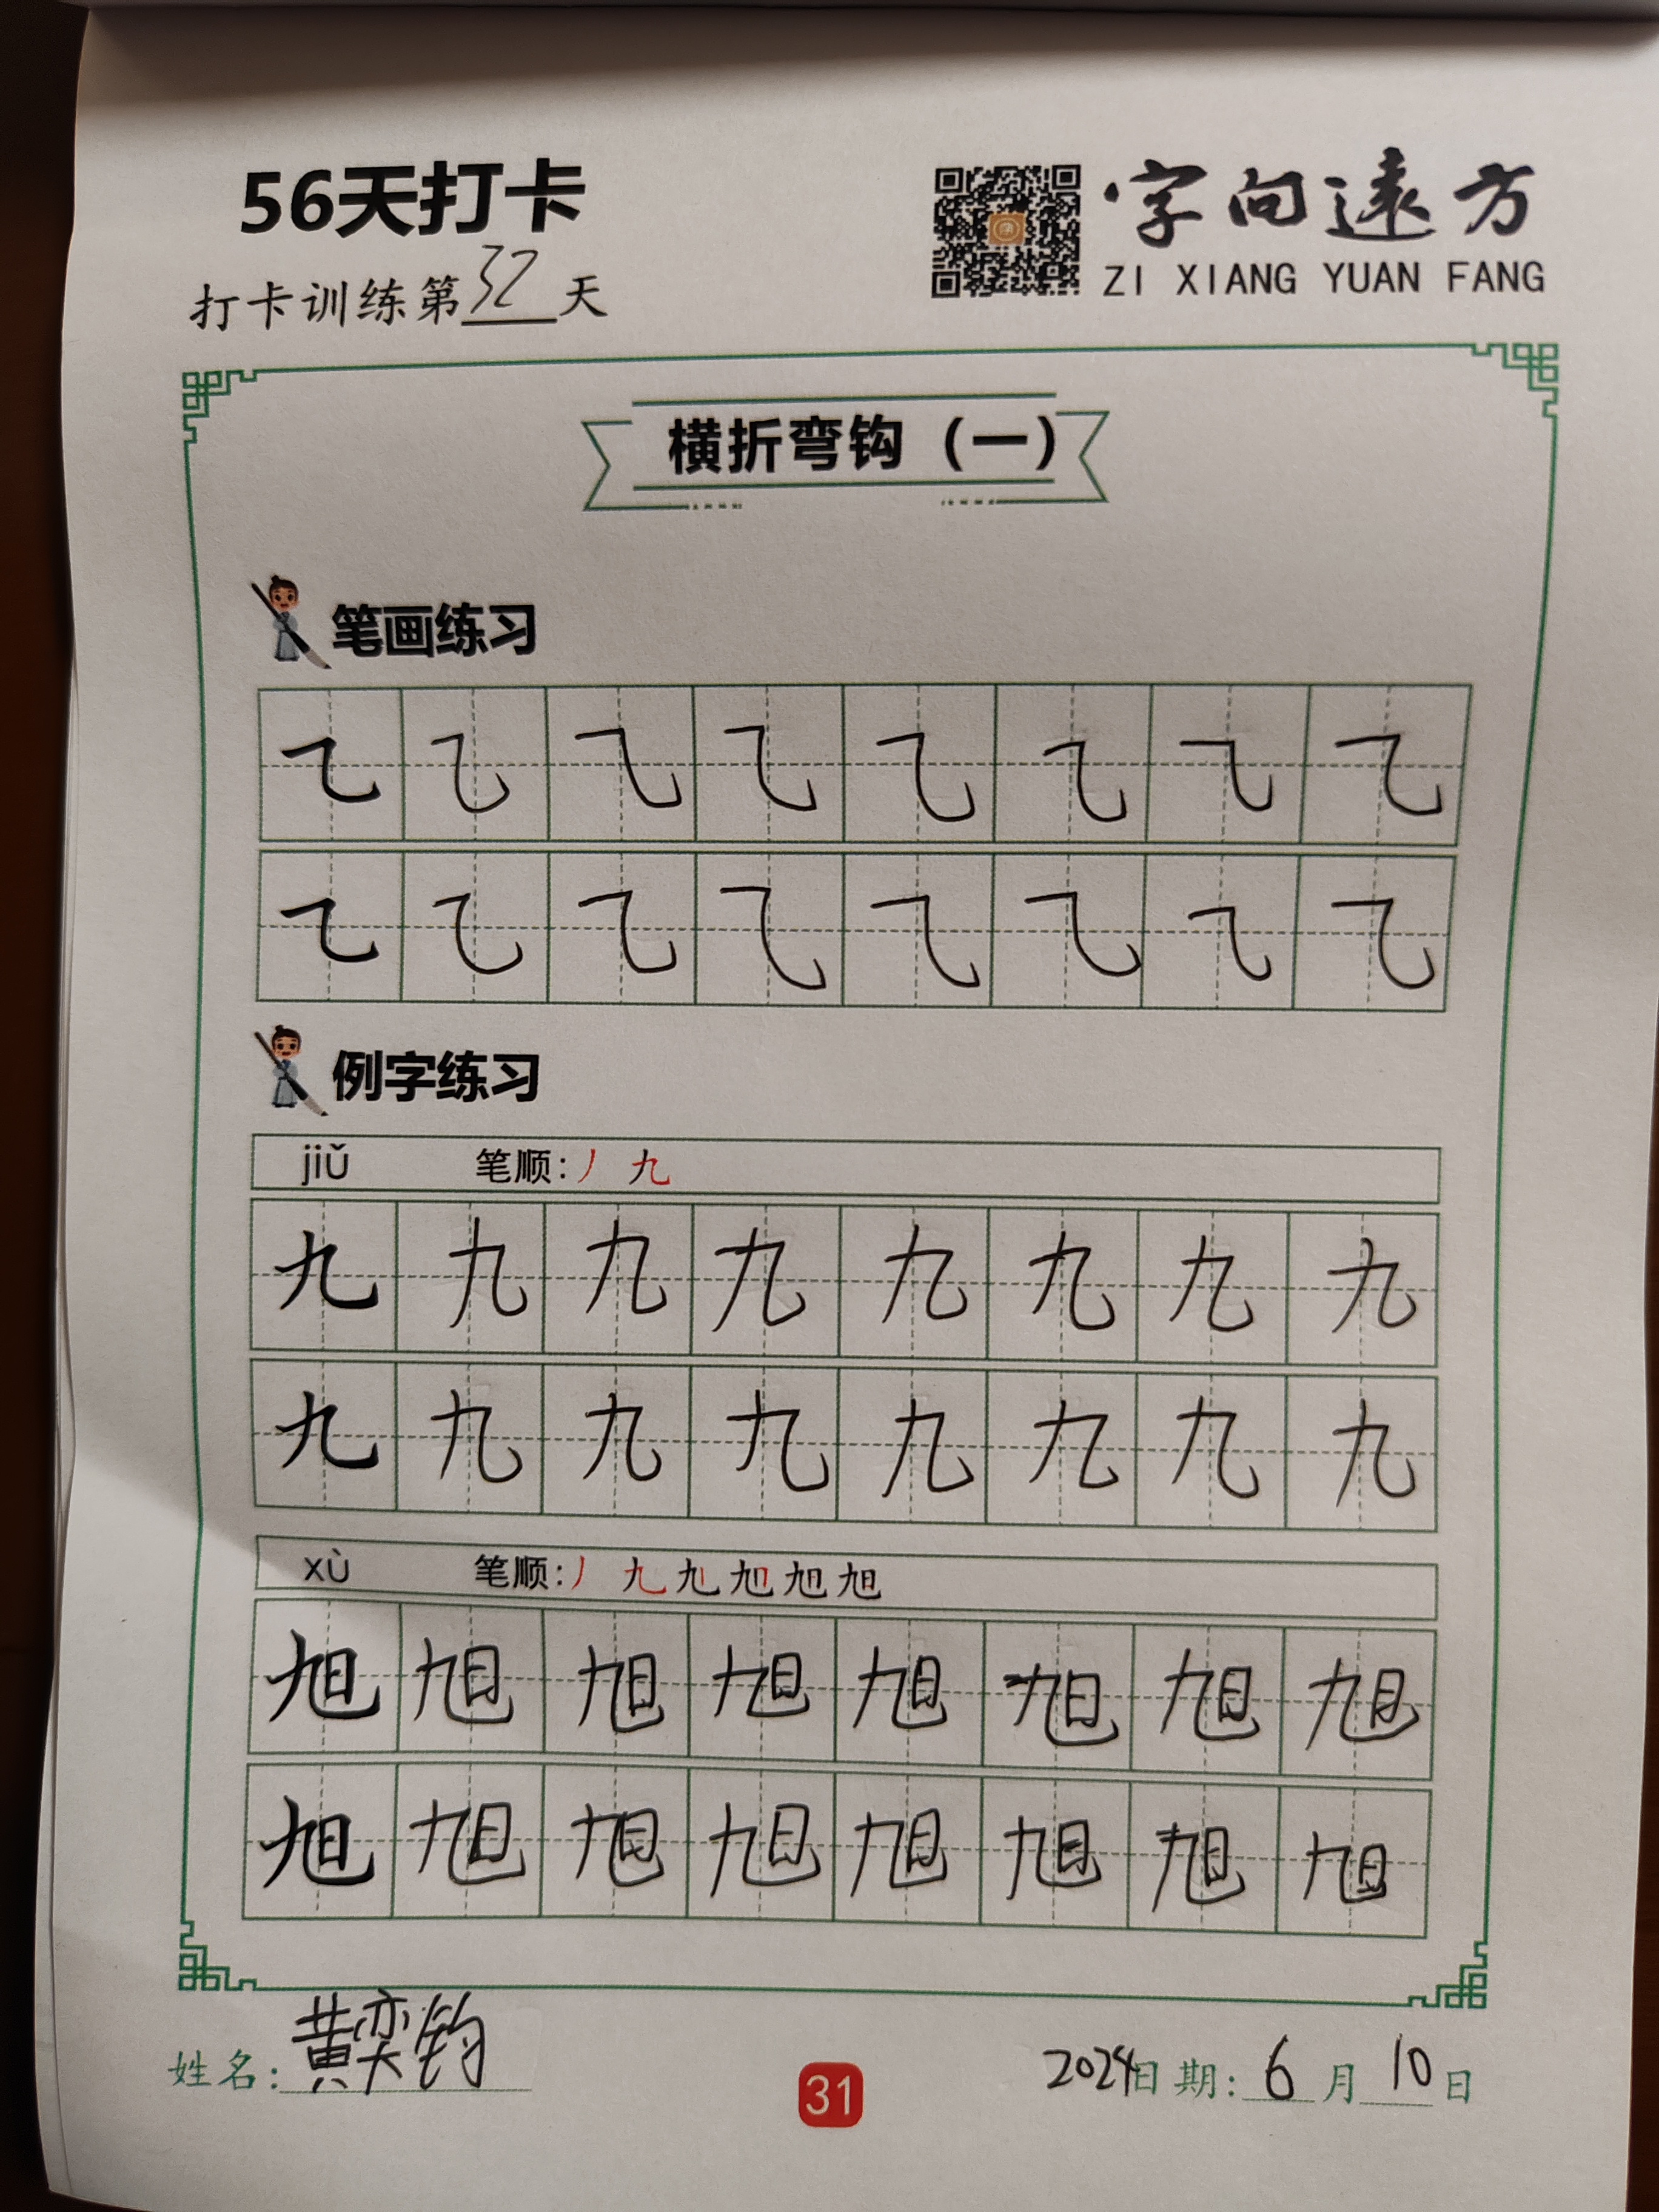 56天打卡
字向遠方
ZI XIANG YUAN FANG
打卡训练第32天
横折弯钩（一）
笔画练习
㇈ ㇈ ㇈ ㇈ ㇈ ㇈ ㇈ ㇈
㇈ ㇈ ㇈ ㇈ ㇈ ㇈ ㇈ ㇈
例字练习
jiǔ 笔顺：丿 九
九 九 九 九 九 九 九 九
九 九 九 九 九 九 九 九
xù 笔顺：丿 九 旭 旭 旭 旭
旭 旭 旭 旭 旭 旭 旭 旭
旭 旭 旭 旭 旭 旭 旭 旭
姓名：黄奕钧
31
2024日期：6月10日